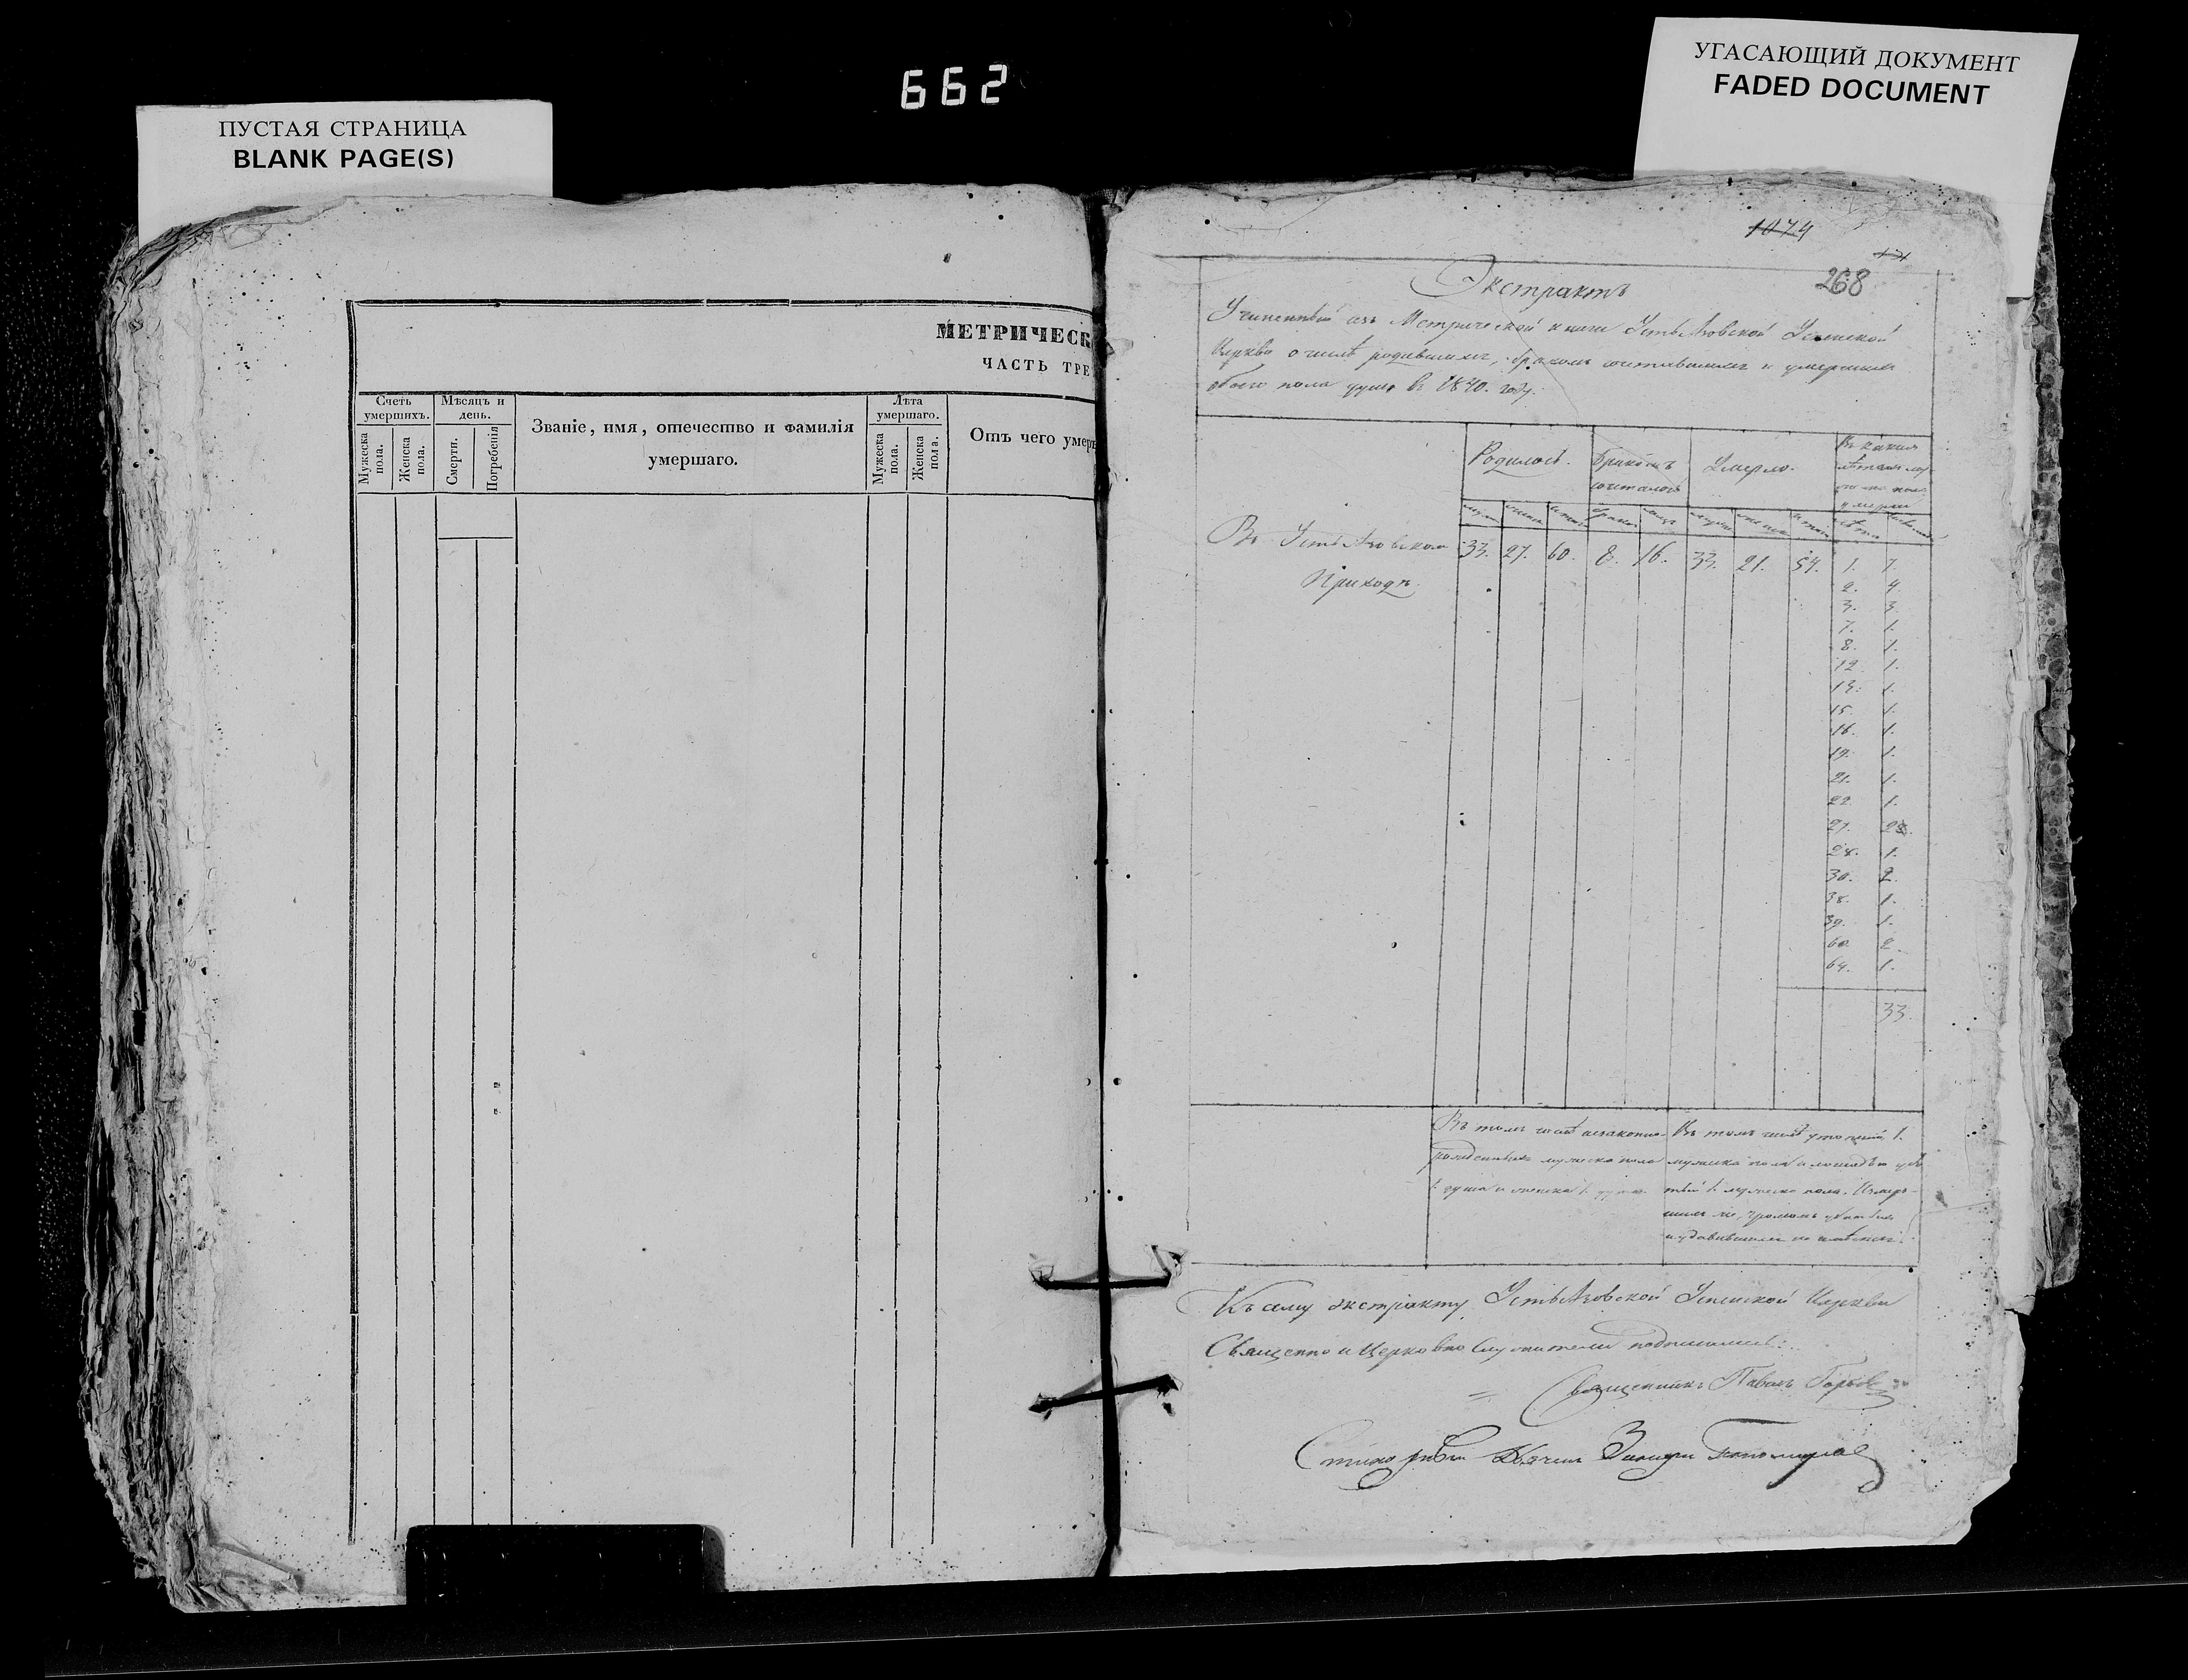 662
ПУСТАЯ СТРАНИЦА
BLANK PAGE(S)
УГАСАЮЩИЙ ДОКУМЕНТ
FADED DOCUMENT
МЕТРИЧЕСК
ЧАСТЬ ТРЕ
Счетъ умершихъ.
Мужеска пола.
Женска пола.
Мѣсяцъ и день.
Смерти.
Погребенія
Званіе, имя, отечество и фамилія
умершаго.
Лѣта умершаго.
Мужеска пола.
Женска пола.
Отъ чего умер
1074
268
Экстрактъ
Учиненный изъ Метрической книги УстьАзовской Успенской
Церкви о числѣ родившихся, бракомъ сочетавшихся и умершихъ
обоего пола душъ въ 1840. году.
Родилось. Бракомъ Умерло. Въ какихъ
сочеталось лѣтахъ
умерли
Въ УстьАзовском 33. 27. 60. 8. 16. 33. 21. 54. 1. 7.
Приходѣ 2. 4.
3. 3.
7. 1.
8. 1.
12. 1.
1.
15. 1.
16. 1.
19. 1.
21. 1.
22. 1.
27. 2
28. 1.
30. 2.
38. 1.
39. 1.
60. 2.
64. 1.
33.
Въ томъ числѣ незаконно-
рожденныхъ мужеска пола
1. душа и женска 1.
Въ томъ числѣ 1.
мужеска пола и лошадью
1. мужеска пола.
громомъ
и удавившихся не
Къ сему экстракту УстьАзовской Успенской Церкви
Священно и Церковно Служители подписались:
Священникъ Павелъ
Дьячекъ